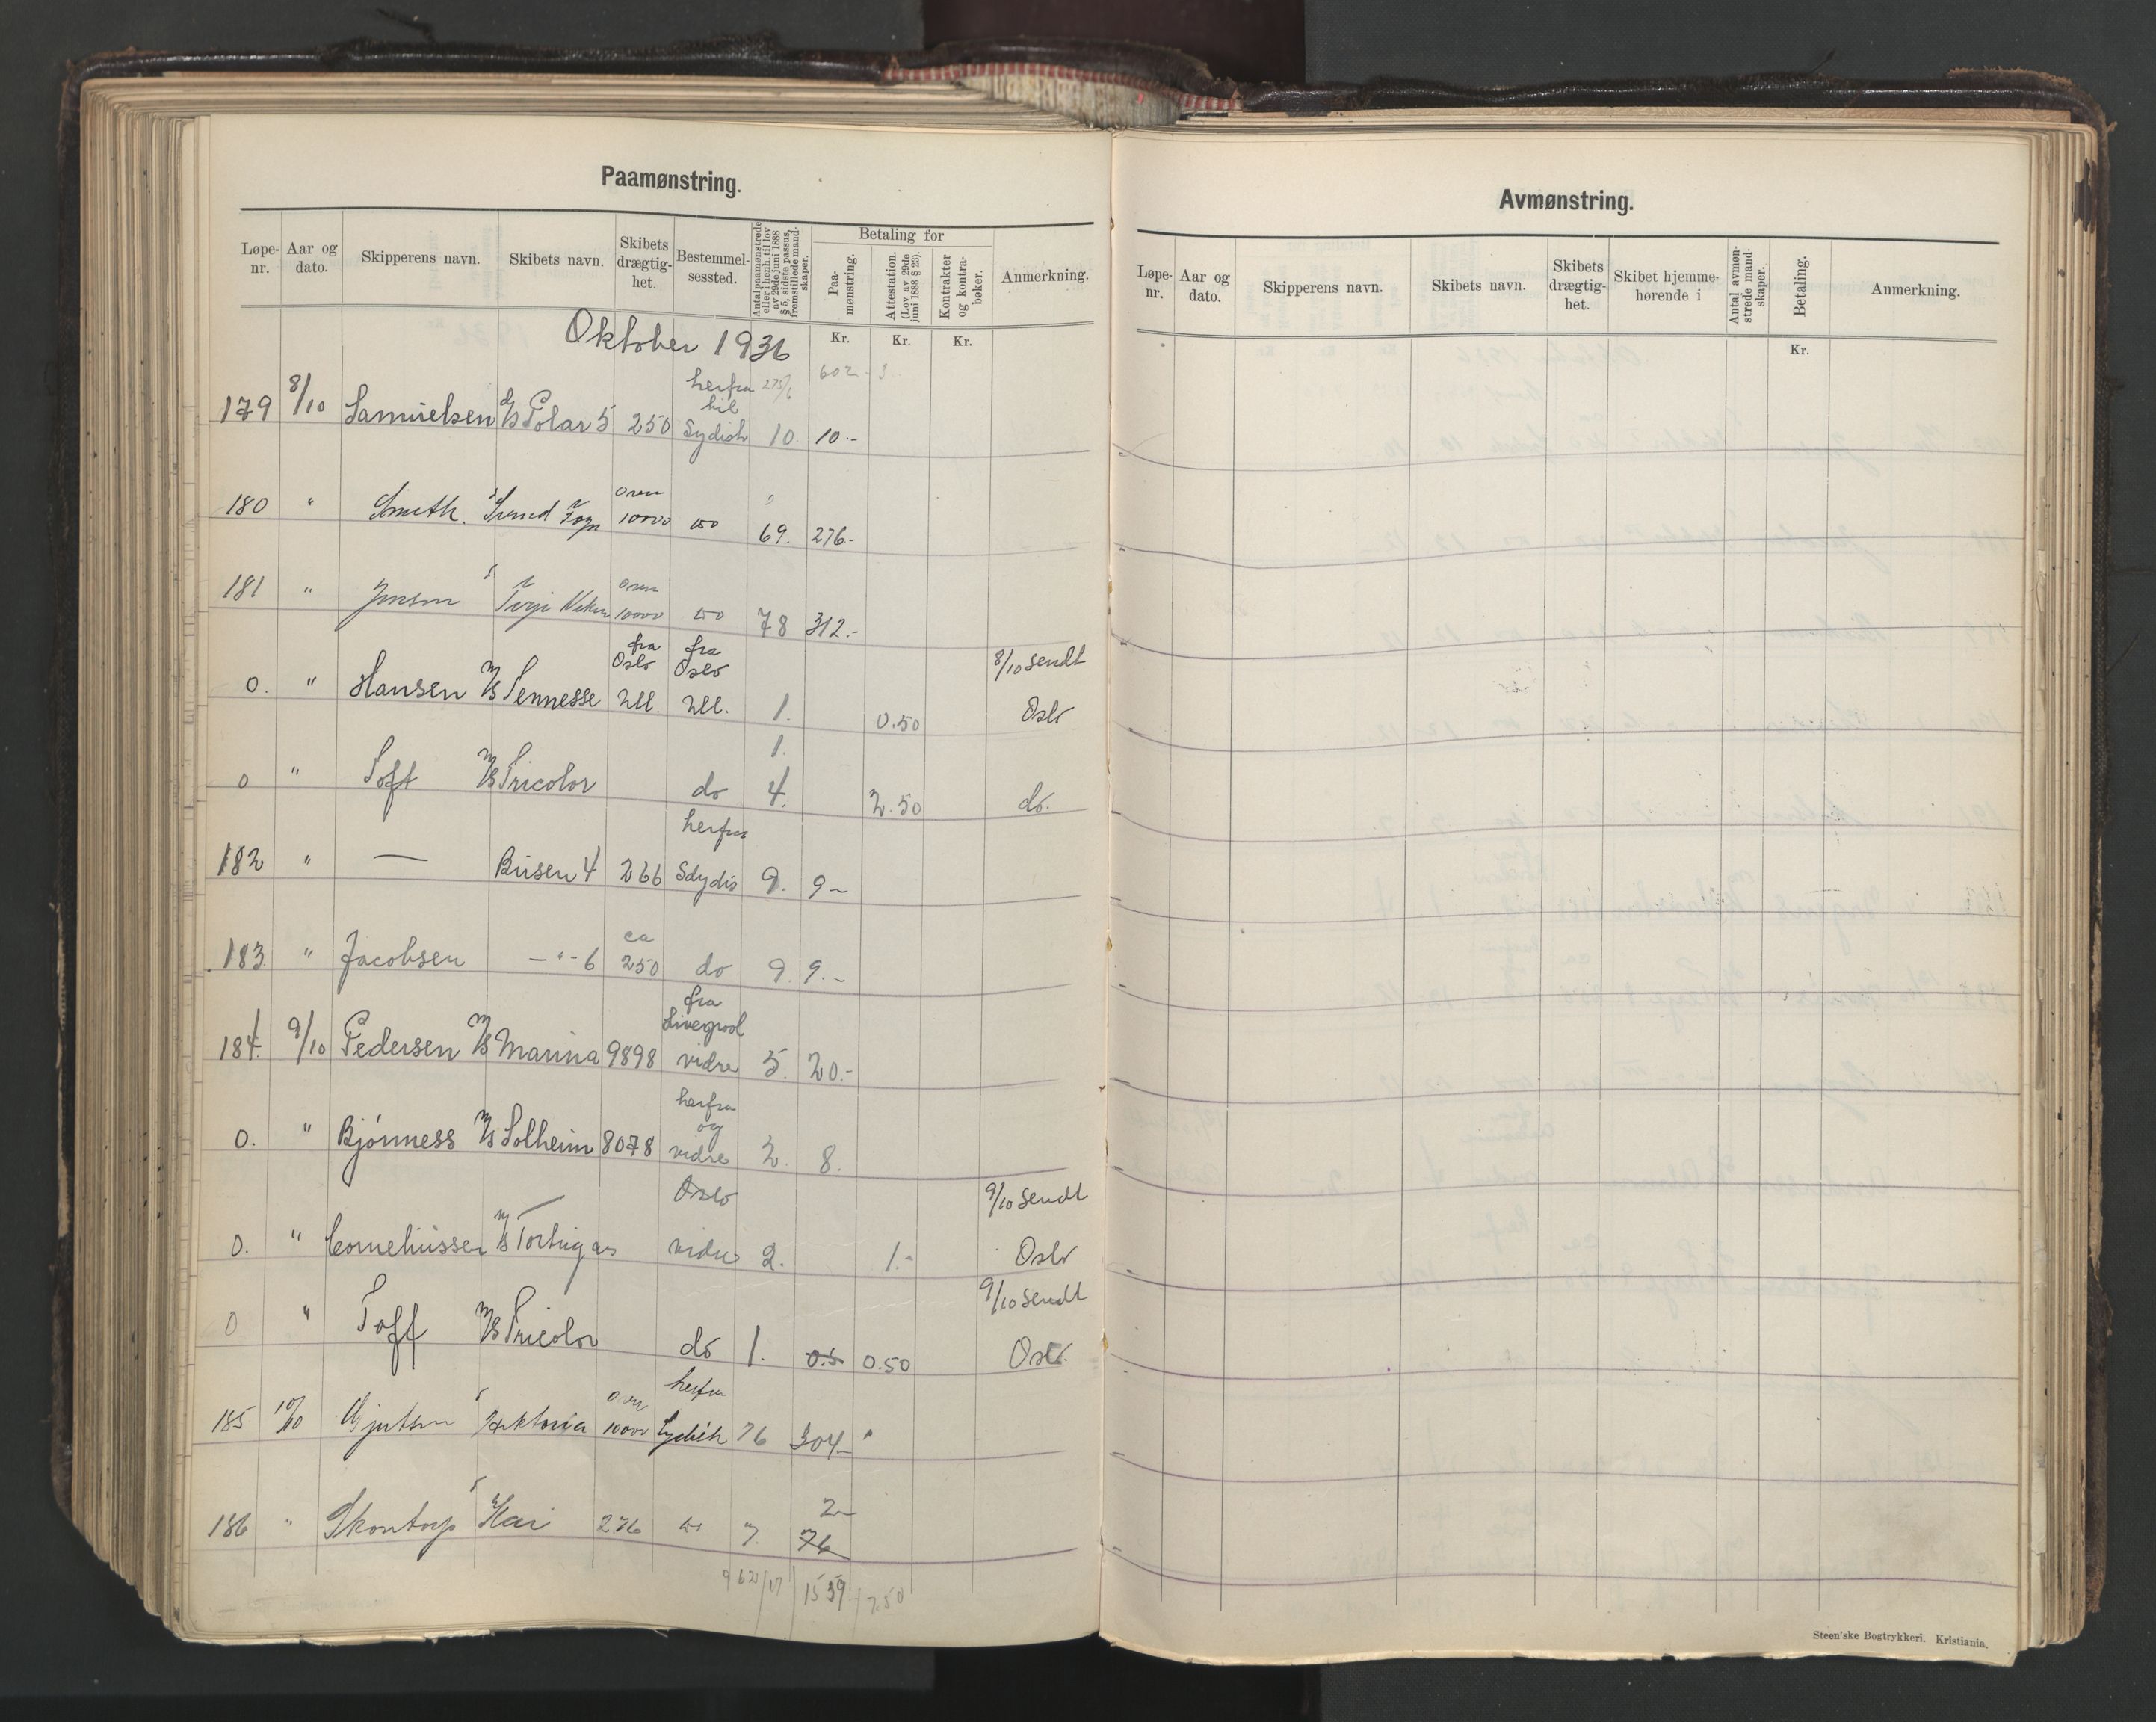 Paamønstring.
Løpe-nr. Aar og dato. Skipperens navn. Skibets navn. Skibets drægtig-het. Bestemmel-sessted. Antal paamønstrede eller i henh. til lov av 29de juni 1888 § 5, sidste passus, fremstillede mand-skaper. Betaling for Paa-mønstring. Attestation. (Lov av 29de juni 1888 § 23). Kontrakter og kontra-bøker. Anmerkning.
Kr. Kr. Kr.
Oktober 1936
179 8/10 Samuelsen d/s Polar 5 250 herfra til Sydish 10 10.-
180 " Smith. 10000 do 69. 276.-
181 " Jensen 10000 do 78 312.-
0. " Hansen m/s Tennesse fra Oslo fra Oslo 1. 0.50 8/10 sendt Oslo
0 " Toft m/s Tricolor do 1. 4. 2.50 do.
182 " — Busen 4 266 herfra Sdydis 9. 9-
183 " Jacobsen - " - 6 ca 250 do 9. 9.-
184 9/10 Pedersen m/s Marina 9898 fra Liverpool vidre 5. 20.-
0. " Bjønness m/s Solheim 8078 herfra og vidre 2. 8.
0. " Corneliussen m/s Tortugas Oslo vidre 2. 1.- 9/10 sendt Oslo
0 " Toff m/s Tricolor do 1. 0.5 0.50 9/10 sendt Oslo.
185 10/10 10000 herfra 76 304-
186 " Skontorp s Kai 276 do 7. 76
1539 7.50
Avmønstring.
Løpe-nr. Aar og dato. Skipperens navn. Skibets navn. Skibets drægtig-het. Skibet hjemme-hørende i Antal avmøn-strede mand-skaper. Betaling. Anmerkning.
Kr.
Steen'ske Bogtrykkeri. Kristiania.